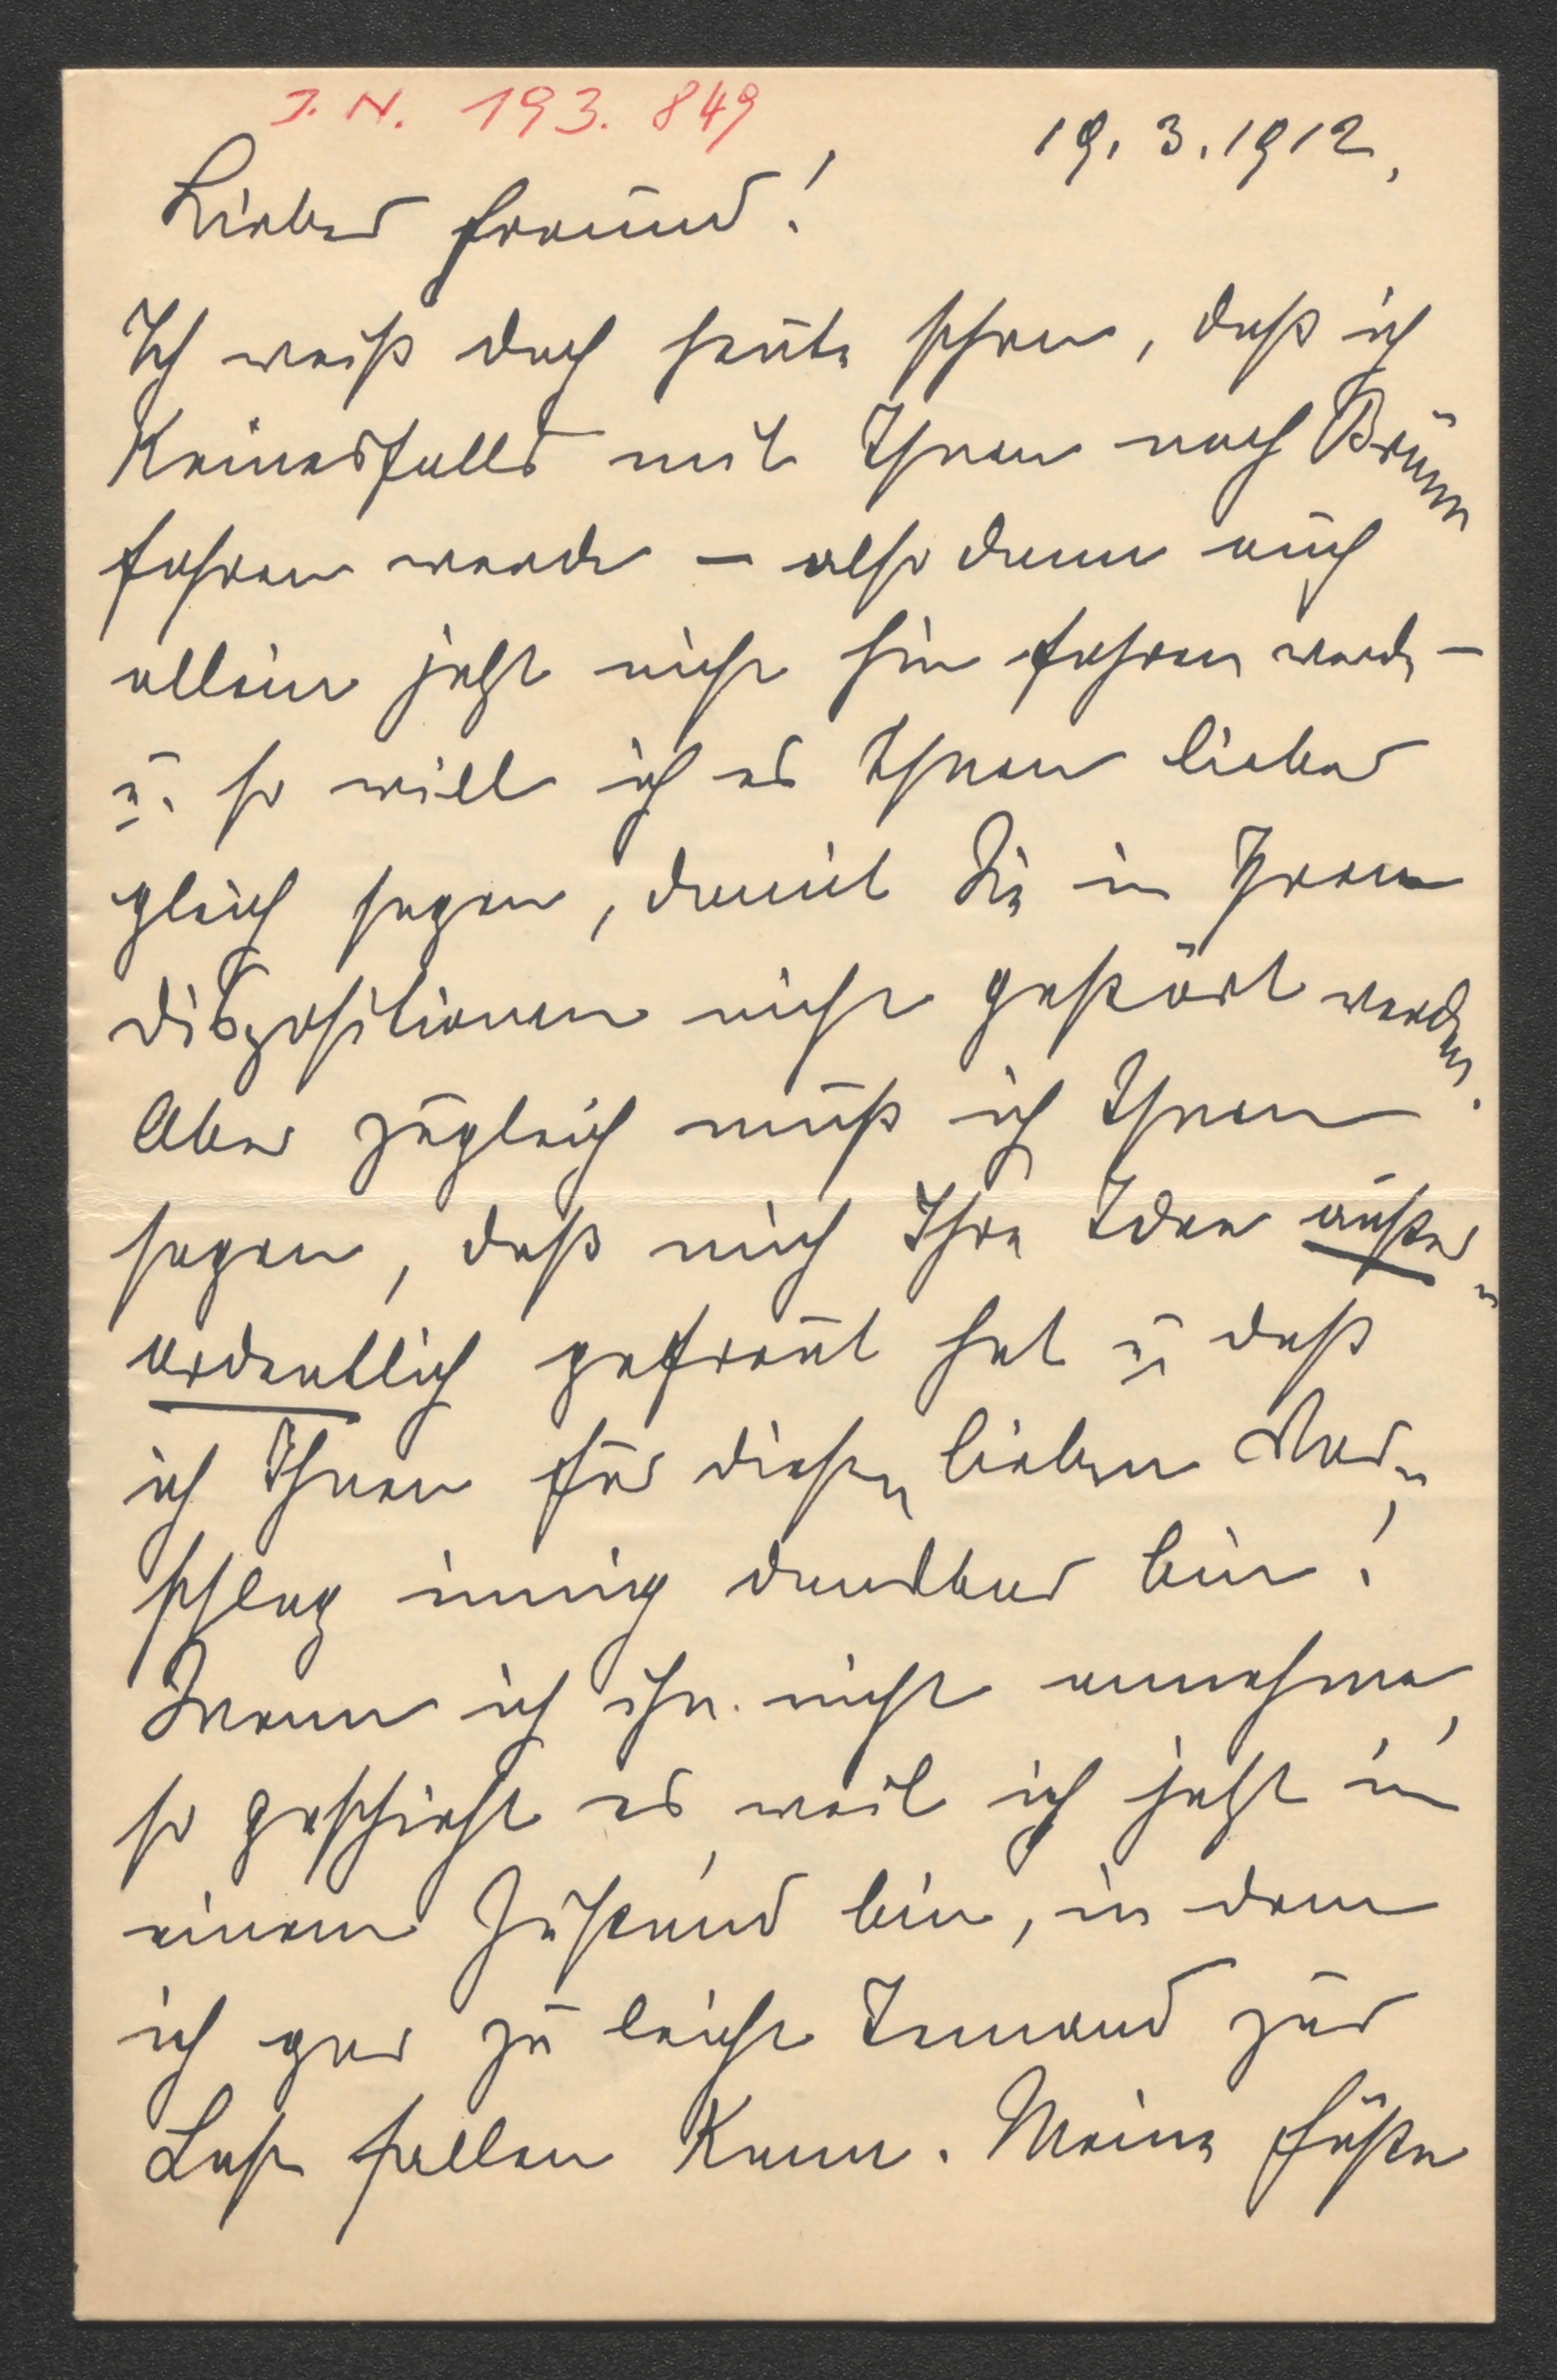 I. N. 193.849
19. 3. 1912.
Lieber Freund!
Ich weiß doch heute schon, daß ich
keinesfalls mit Ihnen nach Brünn
fahren werde – also dann auch
allein jetzt nicht hin fahren werde –
u. so will ich es Ihnen lieber
gleich sagen, damit Sie in Ihren
Dispositionen nicht gestört werden.
Aber zugleich muß ich Ihnen
sagen, daß mich Ihre Idee außer-
ordentlich gefreut hat u. daß
ich Ihnen für diesen lieben Vor-
schlag innig dankbar bin!
Wenn ich ihn nicht annehme,
so geschieht es, weil ich jetzt in
einem Zustand bin, in dem
ich gar zu leicht Jemand zur
Last fallen kann. Meine Füße